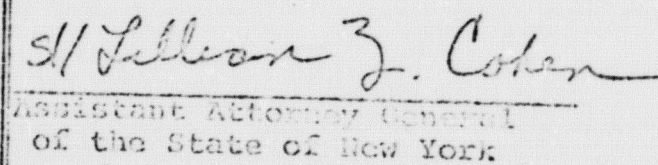 s// Lillian Z. Cohen
Assistant Attorney General
of the State of New York